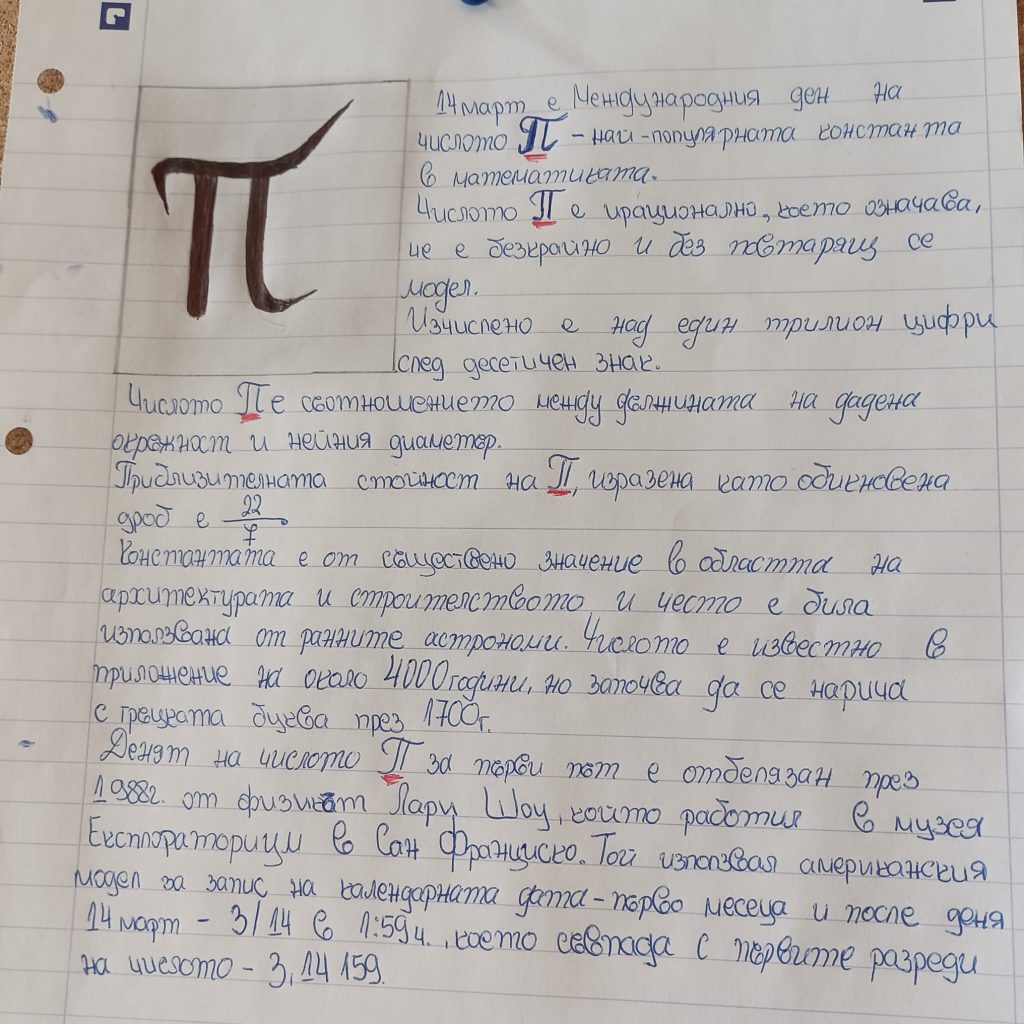 14 март е Международния ден на
число̀то П - най-популярната константа
в математиката.
Числото П е ирационално, което означава,
че е безкрайно и без повтарящ се
модел.
Изчислено е над един трилион цифри
след десетичен знак.
Числото П е съотношението между дължината на дадена
окръжност и нейния диаметър.
Приблизителната стойност на П, изразена като обикновена
дроб е 22/7.
Константата е от съществено значение в областта на
архитектурата и строителството, и често е била
използвана от ранните астрономи. Числото е известно в
приложение на около 4000 години, но започва да се нарича
с гръцката буква през 1700г.
Денят на числото П за първи път е отбелязан през
1988г. от физикът Лари Шоу, който работил в музея
Експлораториум в Сан Франциско. Той използвал американския
модел за запис на календарната дата - първо месеца и после деня
14 март - 3/14 в 1:59ч., което съвпада с първите разреди
на числото - 3,14 159.